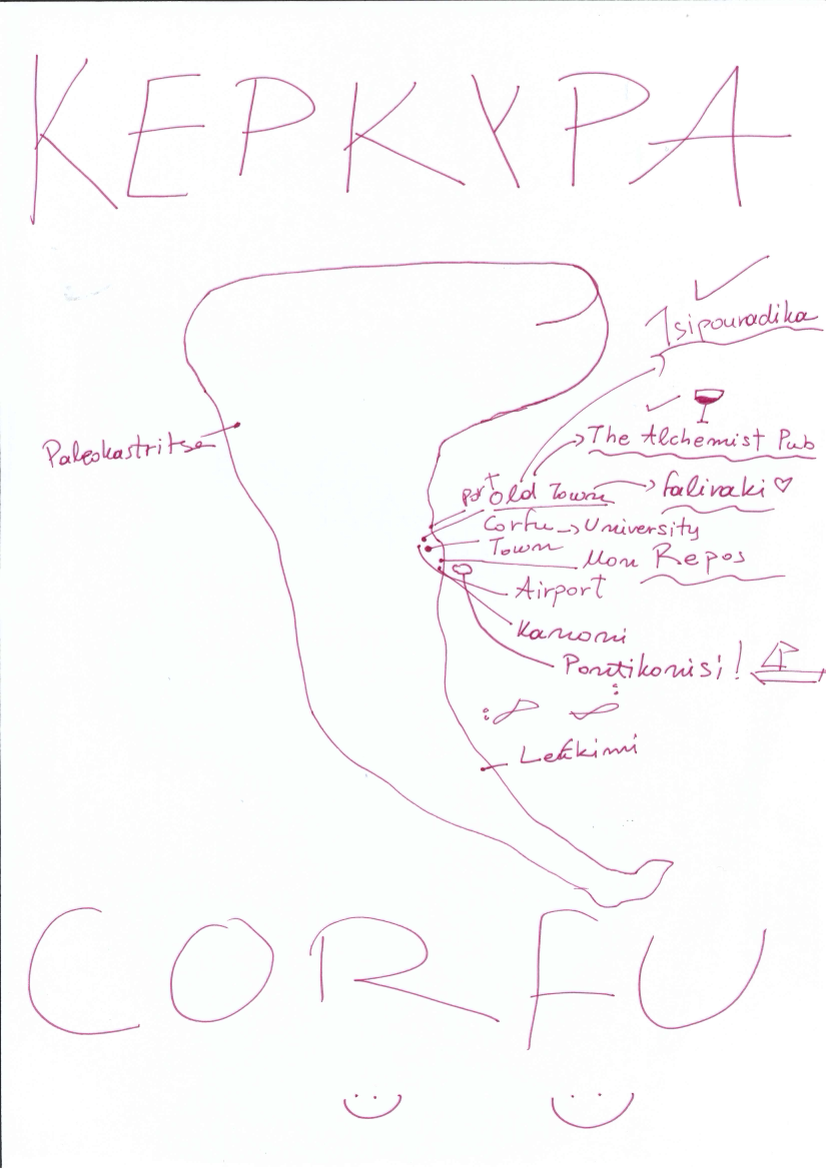 ΚΕΡΚΥΡΑ
Tsipouradika
The Alchemist Pub
Paleokastritsa
port Old Town → faliraki ♡
Corfu → University
Town
Mon Repos
Airport
Kanoni
Pontikonisi!
Lefkimi
CORFU